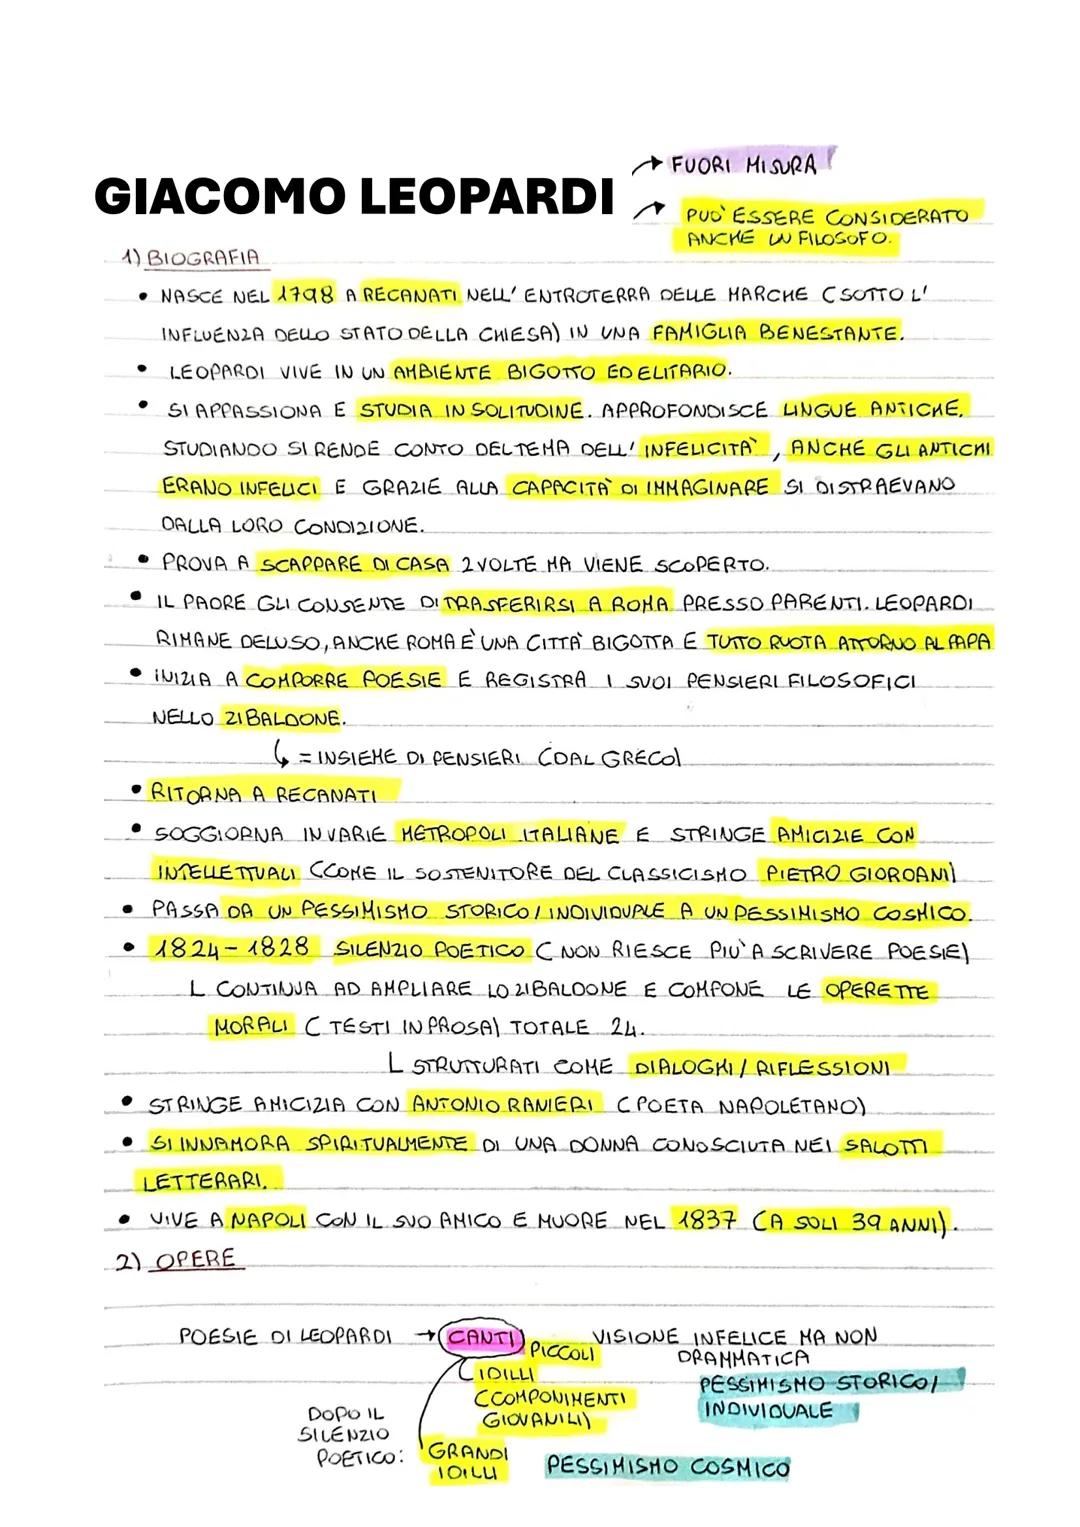 → FUORI MISURA
GIACOMO LEOPARDI
→ PUO' ESSERE CONSIDERATO
ANCHE UN FILOSOFO.
1) BIOGRAFIA
• NASCE NEL 1798 A RECANATI NELL' ENTROTERRA DELLE MARCHE (SOTTO L'
INFLUENZA DELLO STATO DELLA CHIESA) IN UNA FAMIGLIA BENESTANTE.
• LEOPARDI VIVE IN UN AMBIENTE BIGOTTO ED ELITARIO.
• SI APPASSIONA E STUDIA IN SOLITUDINE. APPROFONDISCE LINGUE ANTICHE.
STUDIANDO SI RENDE CONTO DEL TEMA DELL' INFELICITA', ANCHE GLI ANTICHI
ERANO INFELICI E GRAZIE ALLA CAPACITA' DI IMMAGINARE SI DISTRAEVANO
DALLA LORO CONDIZIONE.
• PROVA A SCAPPARE DI CASA 2 VOLTE MA VIENE SCOPERTO.
• IL PADRE GLI CONSENTE DI TRASFERIRSI A ROMA PRESSO PARENTI. LEOPARDI
RIMANE DELUSO, ANCHE ROMA E' UNA CITTA' BIGOTTA E TUTTO RUOTA ATTORNO AL PAPA
• INIZIA A COMPORRE POESIE E REGISTRA I SUOI PENSIERI FILOSOFICI
NELLO ZIBALDONE.
↳ = INSIEME DI PENSIERI (DAL GRECO)
• RITORNA A RECANATI
• SOGGIORNA IN VARIE METROPOLI ITALIANE E STRINGE AMICIZIE CON
INTELLETTUALI (COME IL SOSTENITORE DEL CLASSICISMO PIETRO GIORDANI)
• PASSA DA UN PESSIMISMO STORICO/INDIVIDUALE A UN PESSIMISMO COSMICO.
• 1824-1828 SILENZIO POETICO (NON RIESCE PIU' A SCRIVERE POESIE)
L CONTINUA AD AMPLIARE LO ZIBALDONE E COMPONE LE OPERETTE
MORALI (TESTI IN PROSA) TOTALE 24.
L STRUTTURATI COME DIALOGHI/RIFLESSIONI
• STRINGE AMICIZIA CON ANTONIO RANIERI (POETA NAPOLETANO)
• SI INNAMORA SPIRITUALMENTE DI UNA DONNA CONOSCIUTA NEI SALOTTI
LETTERARI.
• VIVE A NAPOLI CON IL SUO AMICO E MUORE NEL 1837 (A SOLI 39 ANNI).
2) OPERE
POESIE DI LEOPARDI → CANTI
PICCOLI
IDILLI
(COMPONIMENTI
GIOVANILI)
VISIONE INFELICE MA NON
DRAMMATICA
PESSIMISMO STORICO/
INDIVIDUALE
DOPO IL
SILENZIO
POETICO:
GRANDI
IDILLI
PESSIMISMO COSMICO